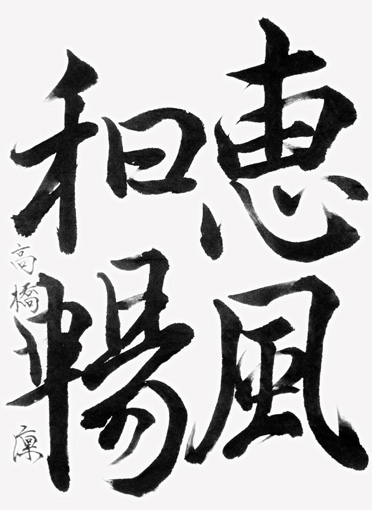 恵風
和暢
高橋凛